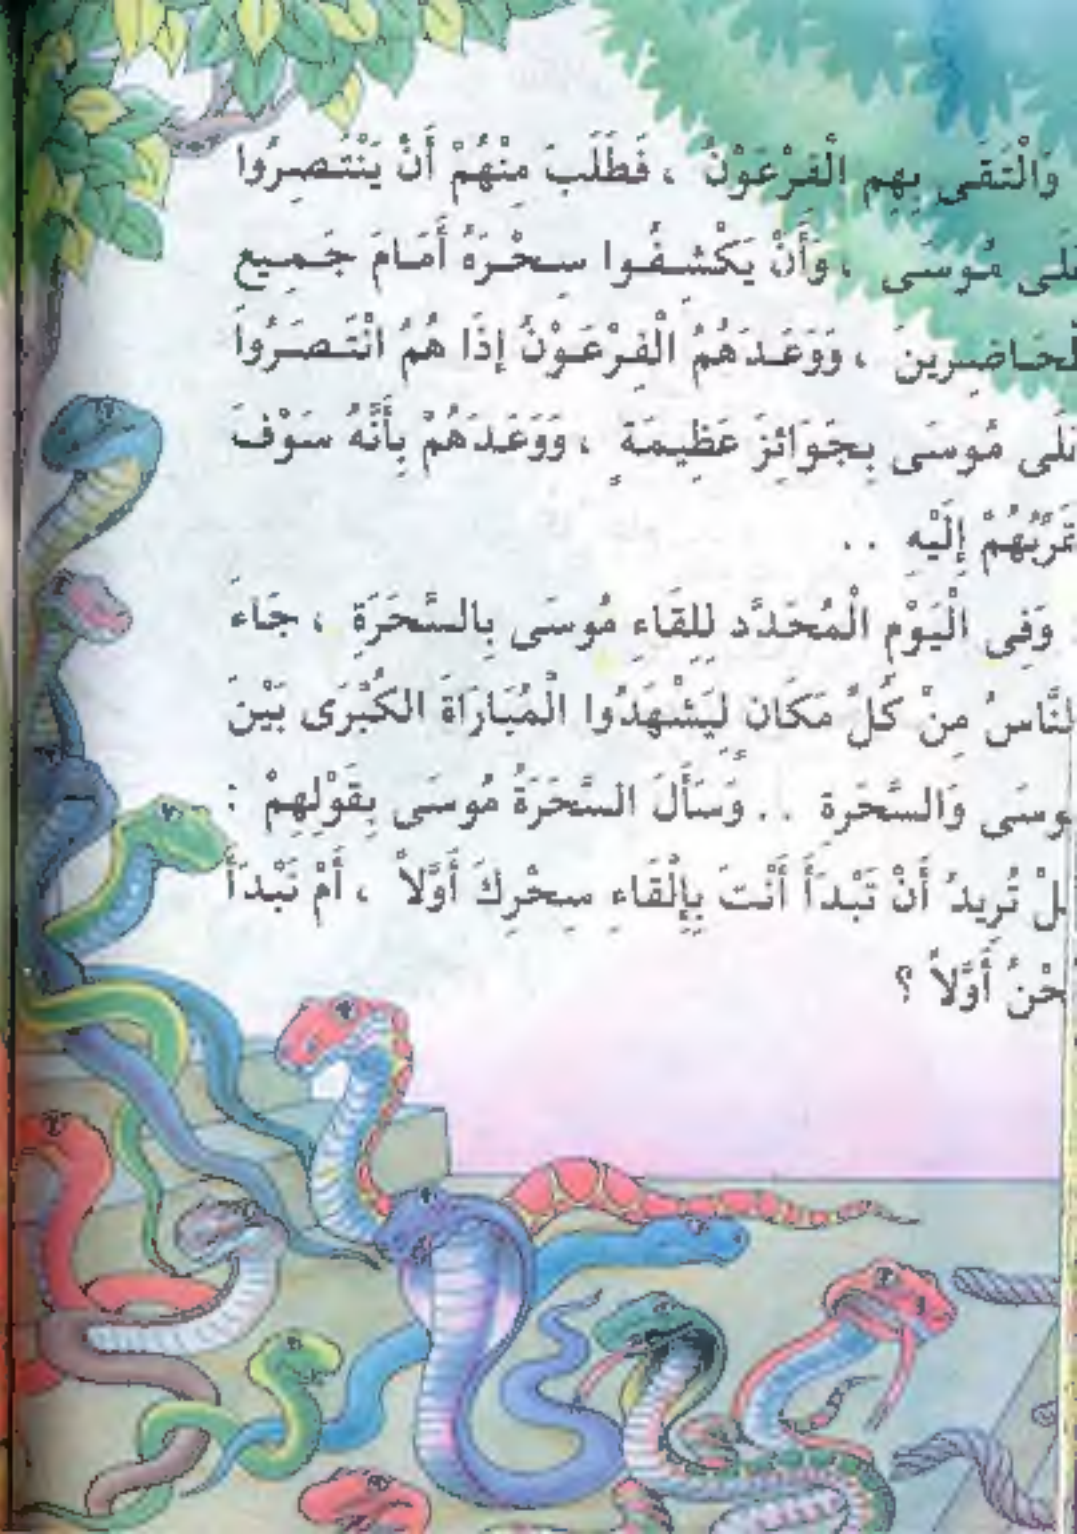 وَالْتَقَى بِهِم الْفِرْعَوْنُ ، فَطَلَبَ مِنْهُمْ أَنْ يَنْتَصِرُوا
لَى مُوسَى ، وَأَنْ يَكْشِفُوا سِحْرَهُ أَمَامَ جَمِيعِ
لْحَاضِرِينَ ، وَوَعَدَهُمُ الْفِرْعَوْنُ إِذَا هُمُ انْتَصَرُوا
لَى مُوسَى بِجَوَائِزَ عَظِيمَةٍ ، وَوَعَدَهُمْ بِأَنَّهُ سَوْفَ
قَرِّبُهُمْ إِلَيْهِ ..
وَفِى الْيَوْمِ الْمُحَدَّدِ لِلِقَاءِ مُوسَى بِالسَّحَرَةِ ، جَاءَ
لنَّاسُ مِنْ كُلِّ مَكَانٍ لِيَشْهَدُوا الْمُبَارَاةَ الكُبْرَى بَيْنَ
وسَى وَالسَّحَرةِ .. وَسَأَلَ السَّحَرَةُ مُوسَى بِقَوْلِهِمْ :
لْ تُرِيدُ أَنْ تَبْدَأَ أَنْتَ بِإِلْقَاءِ سِحْرِكَ أَوَّلاً ، أَمْ نَبْدَأُ
حْنُ أَوَّلاً ؟